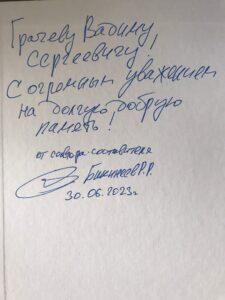 Грачеву Вадиму
Сергеевичу,
С огромным уважением
на долгую, добрую
память!
от автора-составителя
Бикинеев Р.Р.
30.06.2023г